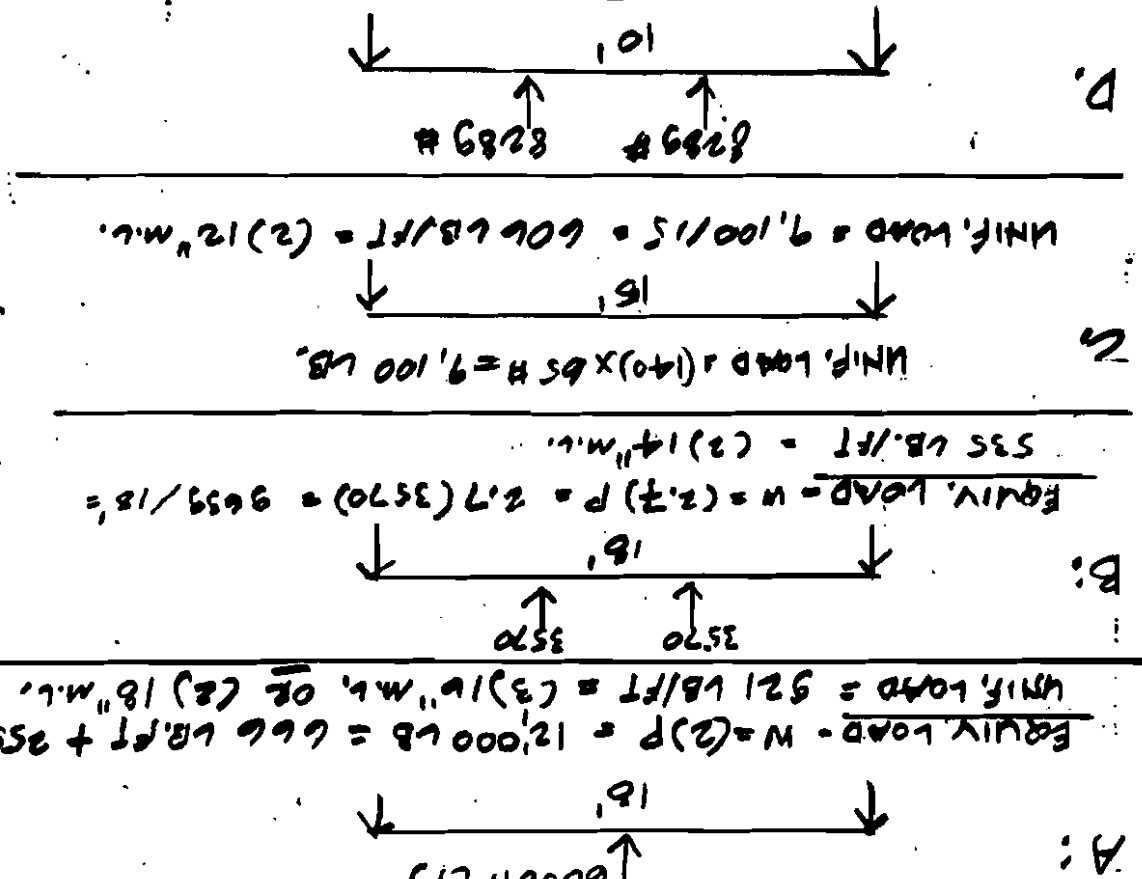 A:
18'
EQUIV. LOAD - W=(2)P = 12,000 LB = 666 LB.FT + 255
UNIF. LOAD = 921 LB/FT = (3)16" M.L, OR (2) 18" M.L.
B:
3570 3570
18'
EQUIV. LOAD - W=(2.7)P = 2.7(3570) = 9639/18'=
535 LB./FT = (2)14" M.L.
C
UNIF. LOAD = (140)x65# = 9,100 LB.
15'
UNIF. LOAD = 9,100/15 = 606 LB/FT = (2)12" M.L.
D.
8289# 8289#
10'